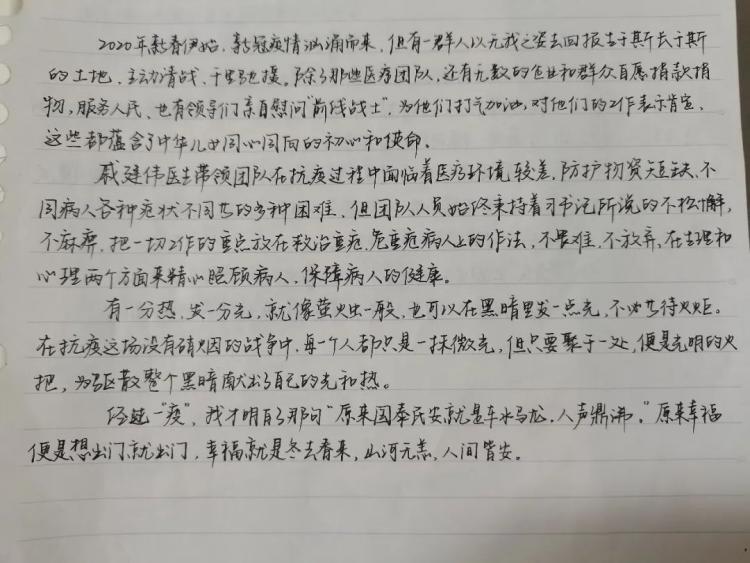 2020年新春伊始，新冠疫情汹涌而来，但有一群人以无我之姿去回报生于斯长于斯
的土地，主动请战、千里驰援。除了那些医疗团队，还有无数的企业和群众自愿捐款捐
物，服务人民，也有领导们亲自慰问“前线战士”，为他们打气加油，对他们的工作表示肯定，
这些都蕴含了中华儿女同心同向的初心和使命。
戚建伟医生带领团队在抗疫过程中面临着医疗环境较差，防护物资短缺，不
同病人各种症状不同等的多种困难，但团队人员始终秉持着习书记所说的不松懈，
不麻痹，把一切工作的重点放在救治重症，危重症病人上的作法，不畏难，不放弃，在生理和
心理两个方面来精心照顾病人，保障病人的健康。
有一分热，发一分光，就像萤火虫一般，也可以在黑暗里发一点光，不必等待火炬。
在抗疫这场没有硝烟的战争中，每一个人都只是一抹微光，但只要聚于一处，便是光明的火
把，为驱散整个黑暗献出了自己的光和热。
经过一“疫”，我才明白了那句“原来国泰民安就是车水马龙，人声鼎沸。”原来幸福
便是想出门就出门，幸福就是冬去春来，山河无恙，人间皆安。